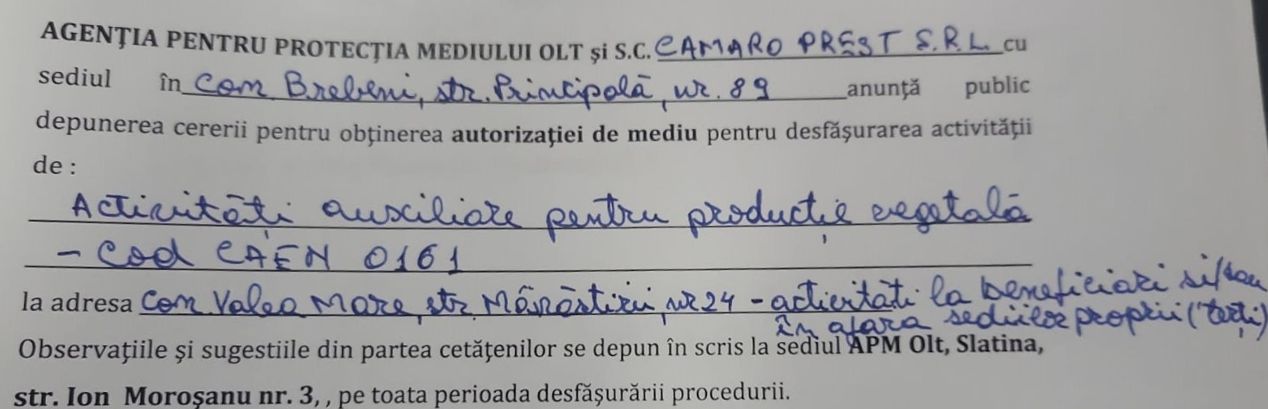 AGENȚIA PENTRU PROTECȚIA MEDIULUI OLT și S.C. CAMARO PREST S.R.L. cu
sediul în Com Brebeni, str. Principală, nr. 89 anunță public
depunerea cererii pentru obținerea autorizației de mediu pentru desfășurarea activității
de :
Activități auxiliare pentru producție vegetală
- Cod CAEN 0161
la adresa Com Valea Mare, str Mânăstirii, nr 24 - activitati la beneficiari si/sau
în afara sediilor proprii (terți)
Observațiile și sugestiile din partea cetățenilor se depun în scris la sediul APM Olt, Slatina,
str. Ion Moroșanu nr. 3, , pe toata perioada desfășurării procedurii.